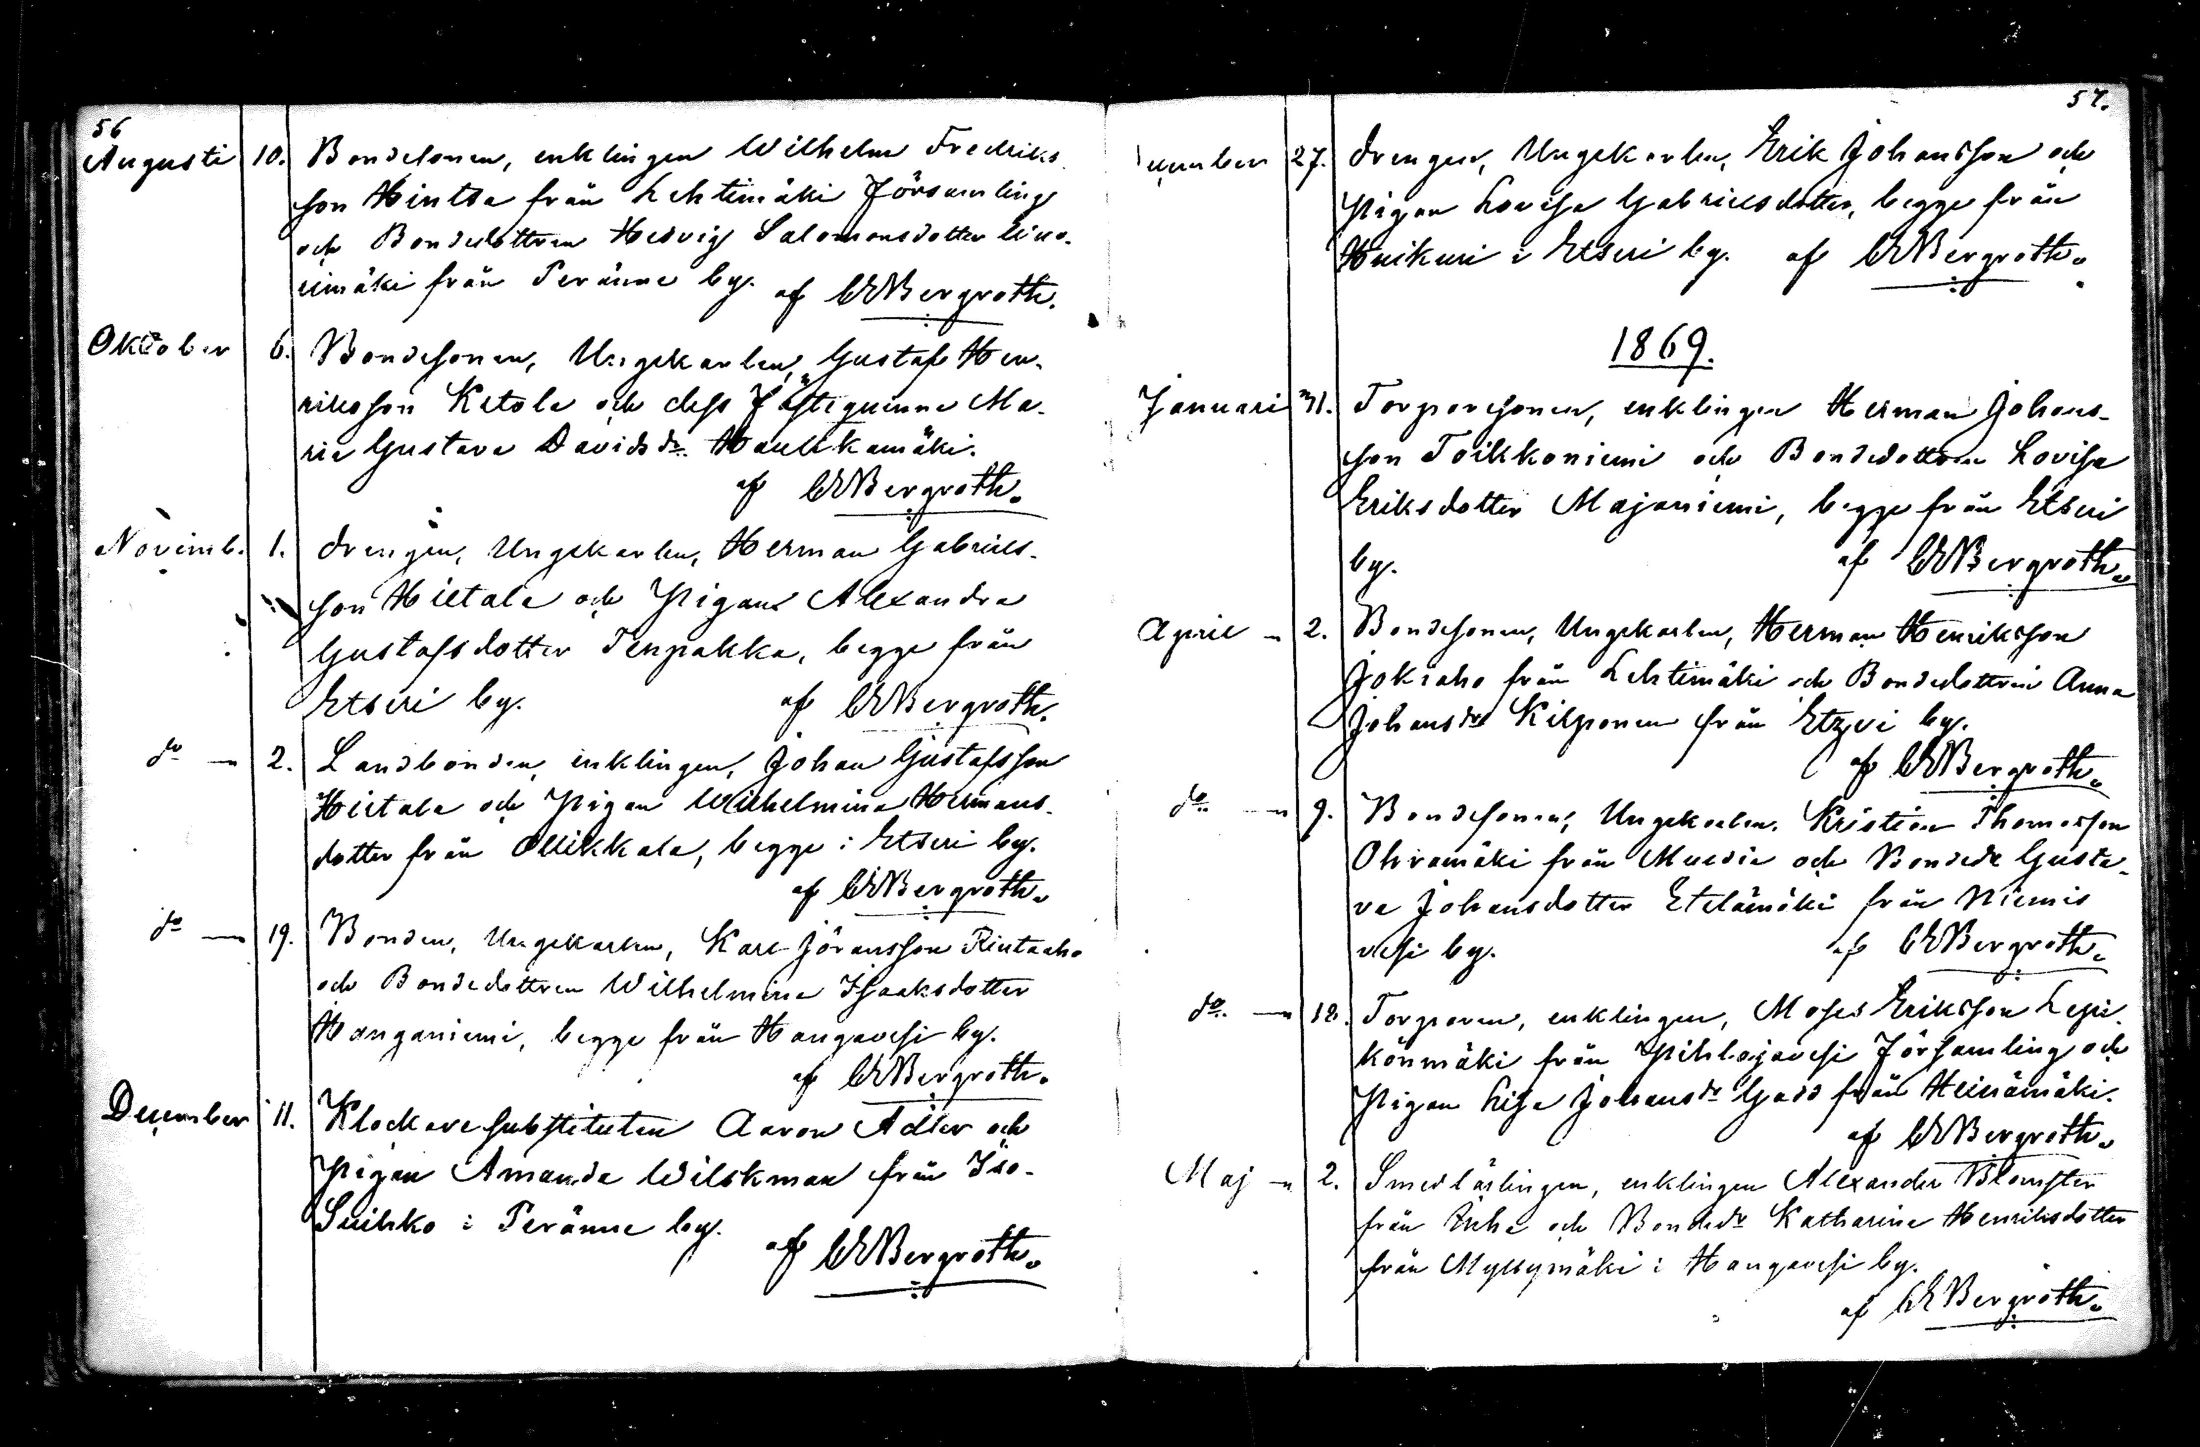 56
Augusti 10. Bondesonen, enklingen Wilhelm Fredriks
son Hintsa från Lehtimäki Församling
och Bondedottren Hedvig Salomonsdotter Uuro-
niemäki från Peränne by. af CEBergroth.
Oktober 6. Bondesonen, Ungekarlen, Gustaf Hen-
riksson Ketola och dess Fästequinna Ma-
ria Gustava Davidsdr. Haukkamäki.
af CEBergroth.
Novemb. 1. Drengen, Ungekarlen, Herman Gabriels-
son Hietala och Pigan Alexandra
Gustafsdotter Tenpakka, begge från
Etseri by. af CEBergroth.
do — 2. Landbonden, enklingen, Johan Gustafsson
Hietala och Pigan Wilhelmina Hermans-
dotter från Ollikkala, begge i Etseri by.
af CEBergroth.
do — 19. Bonden, Ungekarlen, Karl Jöransson Rintaaho
och Bondedottren Wilhelmina Isaaksdotter
Hanganiemi, begge från Hangavesi by.
af CEBergroth.
December 11. Klockaresubstituten Aaron Adler och
Pigan Amanda Wilskman från Iso-
Suihko i Peränne by.
af CEBergroth.
57.
December 27. Drengen, Ungekarlen, Erik Johansson och
Pigan Lovisa Gabrielsdotter, begge från
Huikuri i Etseri by. af CEBergroth.
1869.
Januari 31. Torparesonen, enklingen Herman Johans-
son Toikkoniemi och Bondedottren Lovisa
Eriksdotter Majaniemi, begge från Etseri
by. af CEBergroth.
April — 2. Bondesonen, Ungekarlen, Herman Henriksson
Jokiaho från Lehtimäki och Bondedottren Anna
Johansdr Kilponen från Etzeri by.
af CEBergroth.
do — 9. Bondesonen, Ungekarlen, Kristian Thomasson
Ohramäki från Multia och Bondedr Gusta-
va Johansdotter Etelämäki från Niemis
vesi by. af CEBergroth.
do. — 18. Torparen, enklingen, Moses Eriksson Lepi-
könmäki från Pihlajavesi Församling och
Pigan Lisa Johansdr Gadd från Heinämäki.
af CEBergroth.
Maj — 2. Smedlärlingen, enklingen Alexander Blomster
från och Bondedr Katharina Henriksdotter
från Myllymäki i Hangavesi by.
af CEBergroth.